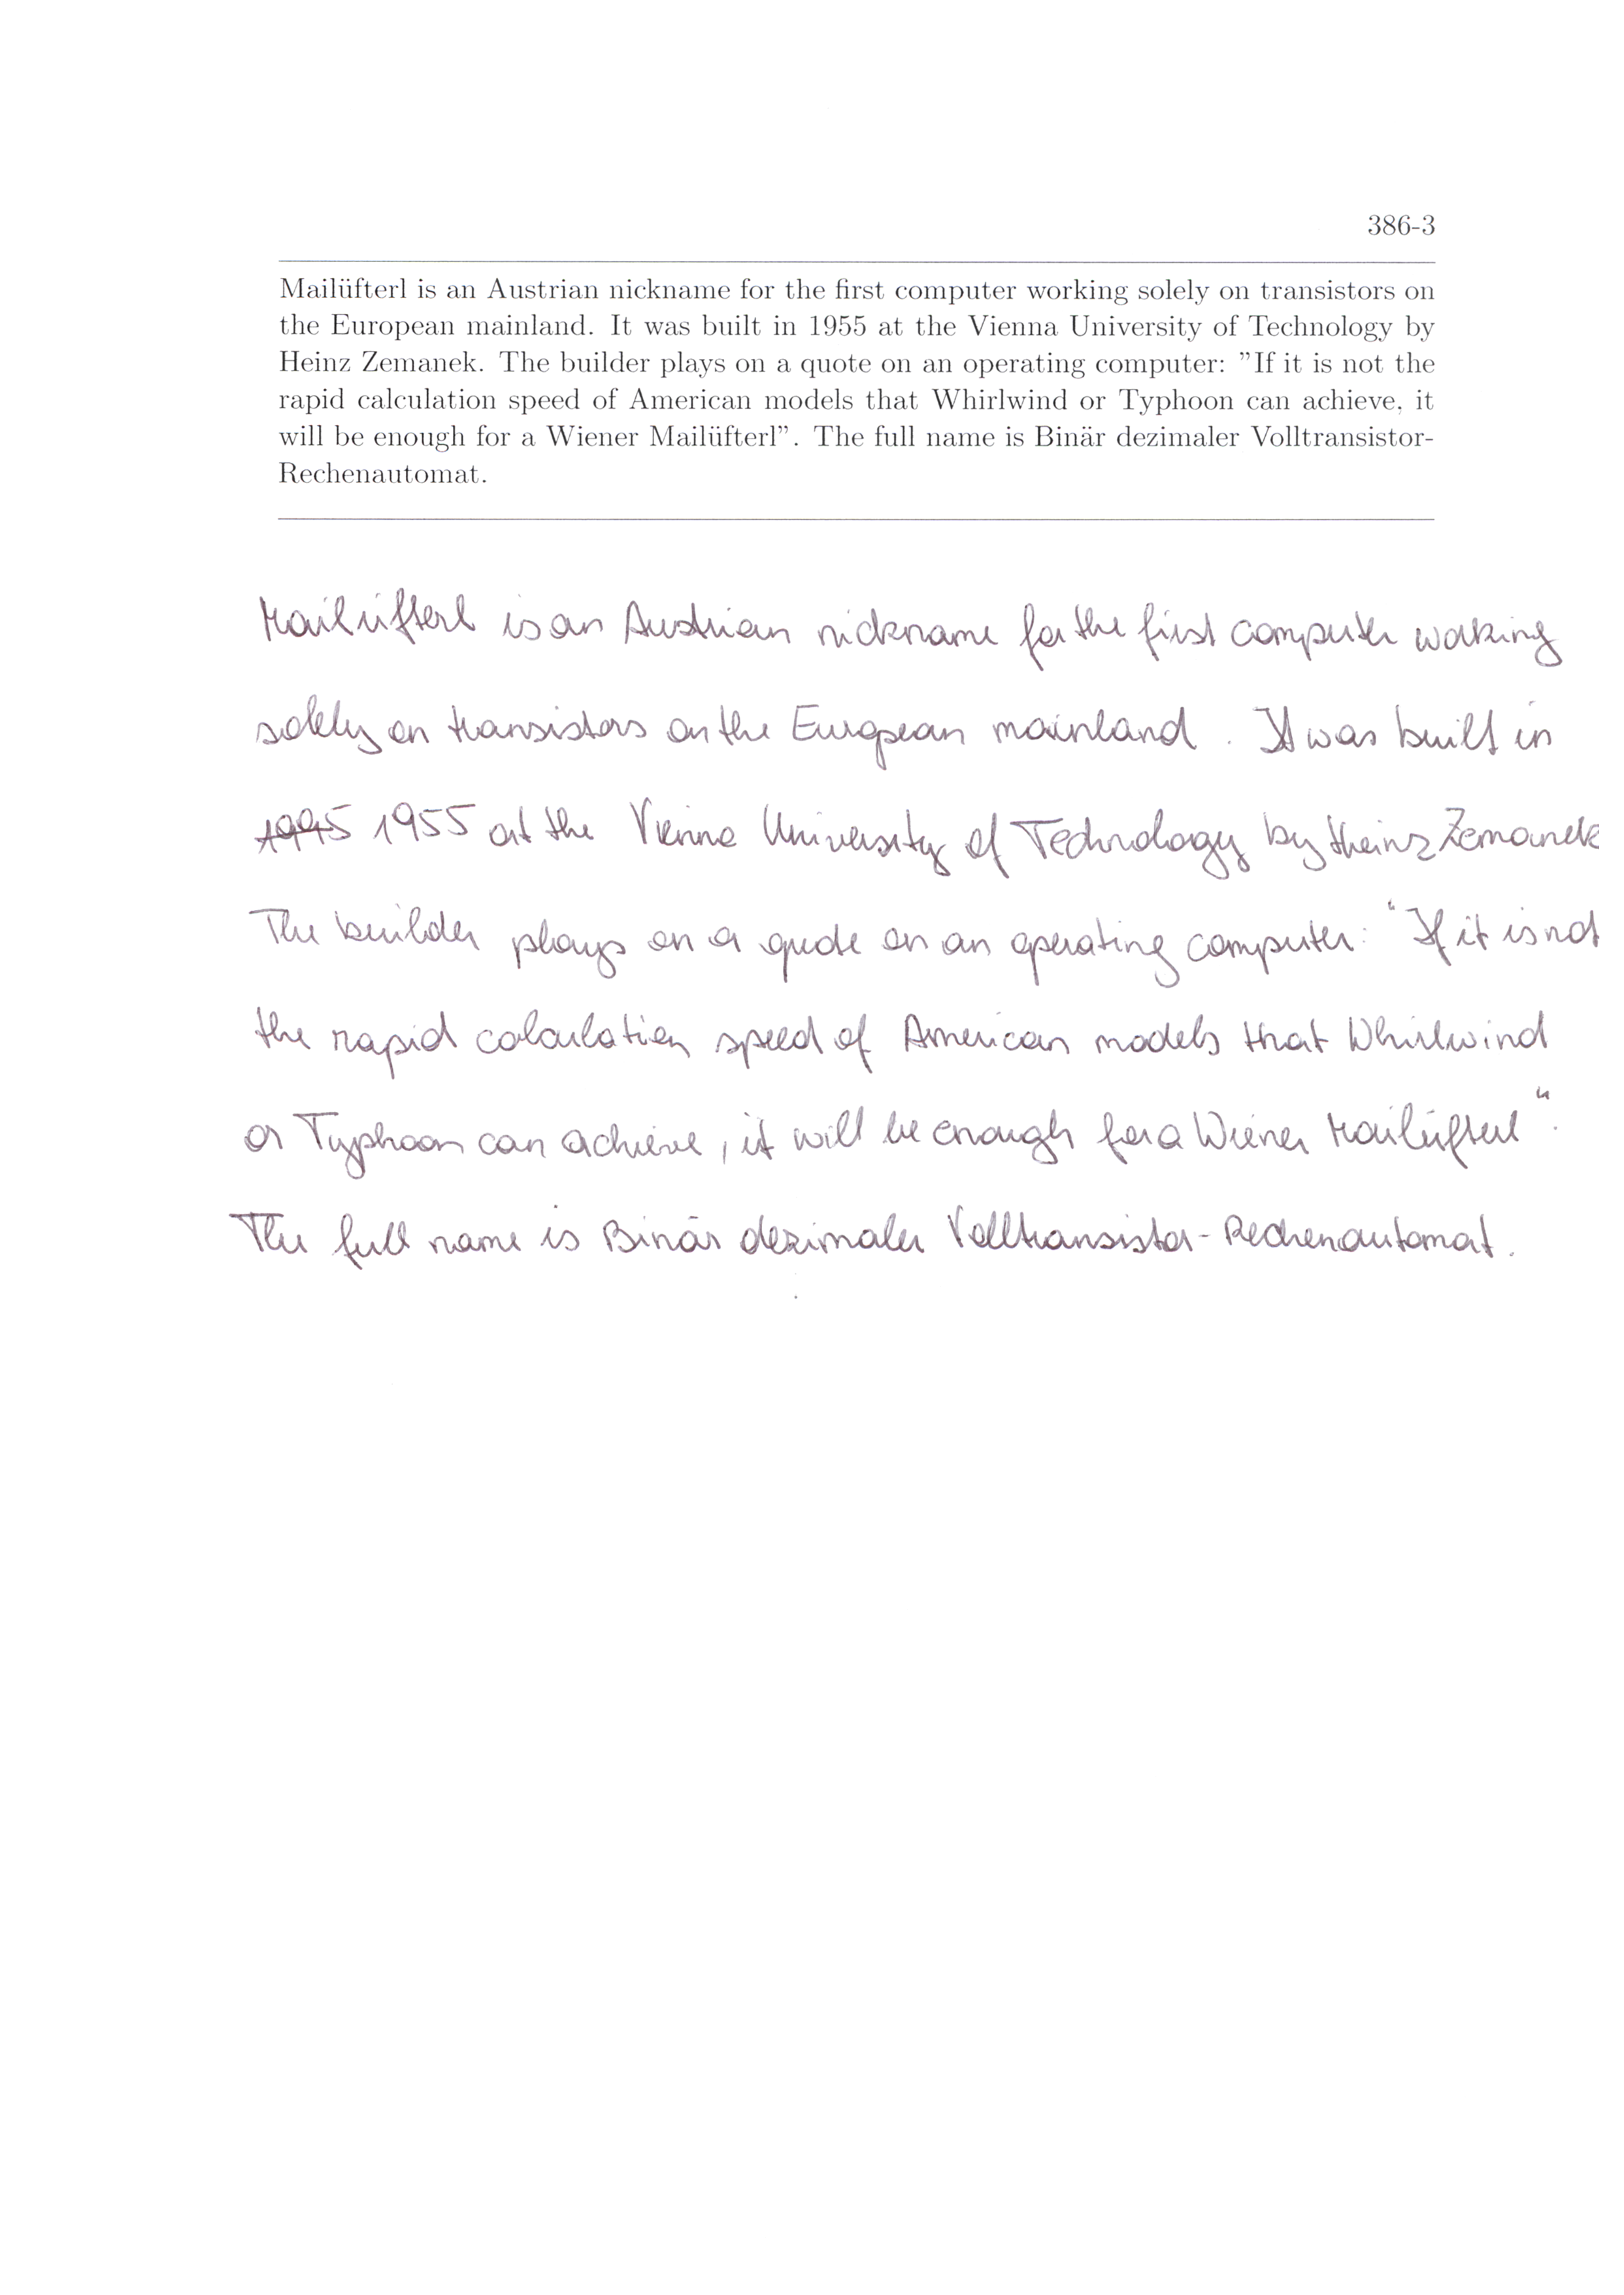 386-3
Mailüfterl is an Austrian nickname for the first computer working solely on transistors on
the European mainland. It was built in 1955 at the Vienna University of Technology by
Heinz Zemanek. The builder plays on a quote on an operating computer: ”If it is not the
rapid calculation speed of American models that Whirlwind or Typhoon can achieve, it
will be enough for a Wiener Mailüfterl”. The full name is Binär dezimaler Volltransistor-
Rechenautomat.
Mailüfterl is an Austrian nickname for the first computer working
solely on transistors on the European mainland. It was built in
1995 1955 at the Vienna University of Technology by Heinz Zemanek
The builder plays on a quote on an operating computer: “If it is not
the rapid calculation speed of American models that Whirlwind
or Typhoon can achieve, it will be enough for a Wiener Mailüfterl“.
The full name is Binär dezimaler Volltransistor-Rechenautomat.